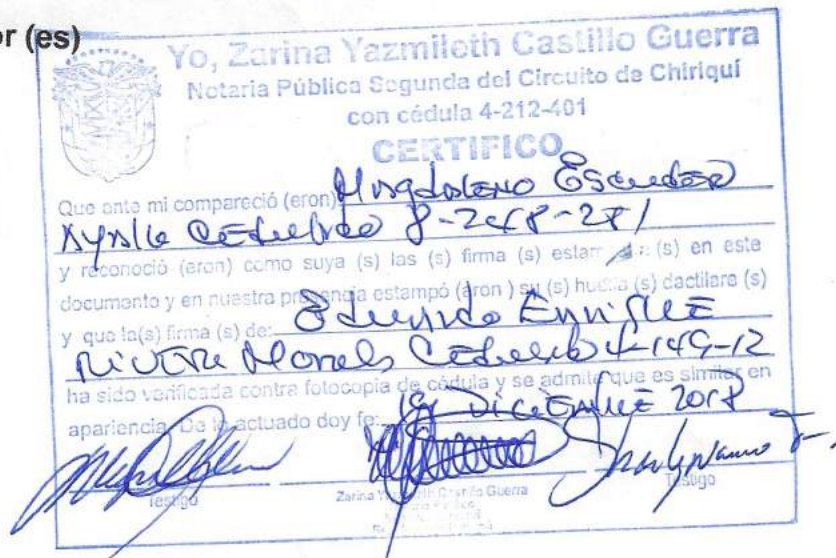 or (es)
Yo, Zarina Yazmileth Castillo Guerra
Notaria Pública Segunda del Circuito de Chiriquí
con cédula 4-212-401
CERTIFICO
Que ante mi compareció (eron) Magdaleno Escudero
Ayala Cedulado 8-248-281
y reconoció (eron) como suya (s) las (s) firma (s) (s) en este
documento y en nuestra presencia estampó (aron ) su (s) huella (s) dactilare (s)
y que la(s) firma (s) de: Eduardo Enrique
Rivera Morales Cedulado 4-149-12
ha sido verificada contra fotocopia de cédula y se admite que es similar en
apariencia. De lo actuado doy fe: Diciembre 2018
Testigo
Zarina Yazmileth Castillo Guerra
Testigo